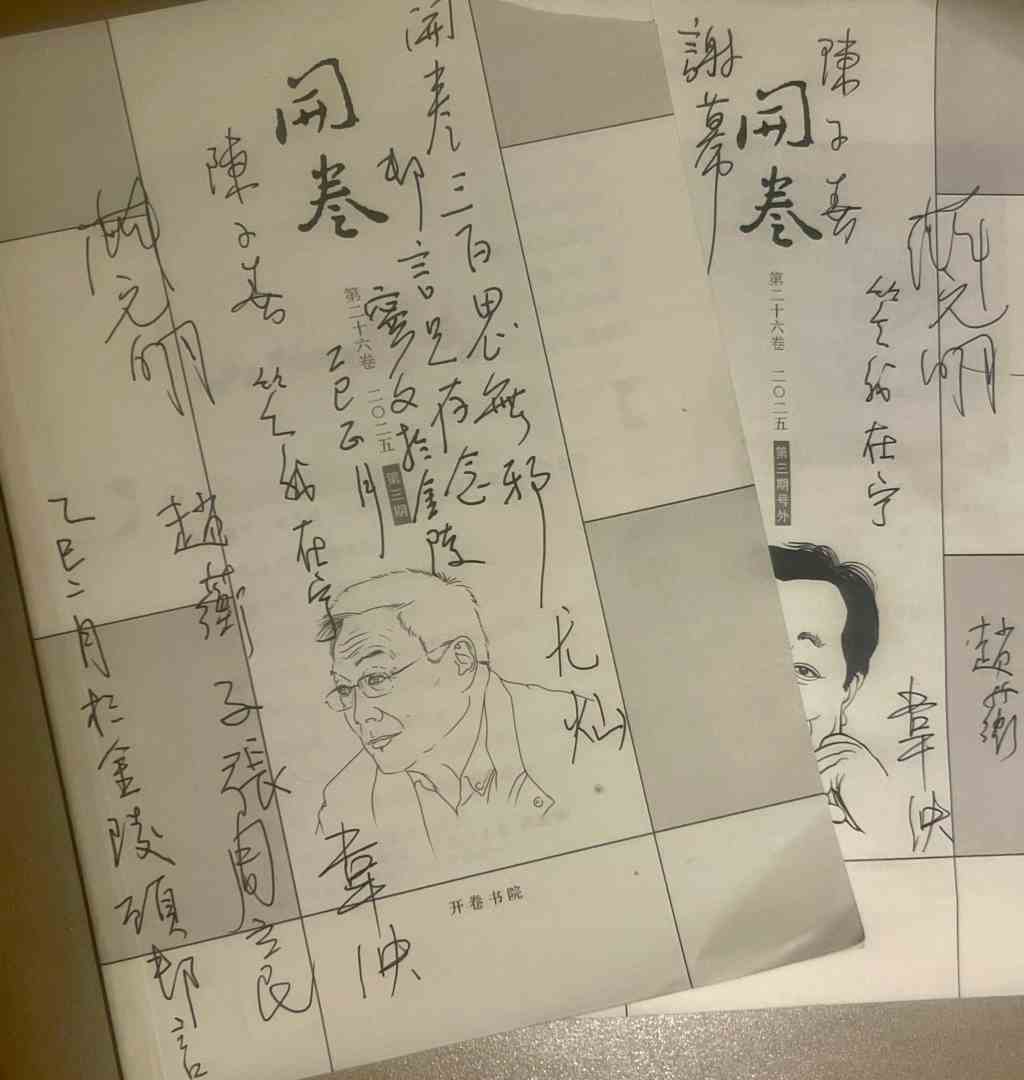 開卷
第二十六卷 二〇二五 第三期
開卷三百思無邪
郏言兄存念
寧文於金陵
乙巳正月
陳子善
笑我在宁
趙蘅
子張
周立民
韋泱
尤灿
乙巳二月於金陵
开卷书院
開卷
第二十六卷 二〇二五 第三期号外
謝幕
陳子善
笑我在宁
韋泱
趙蘅
元明